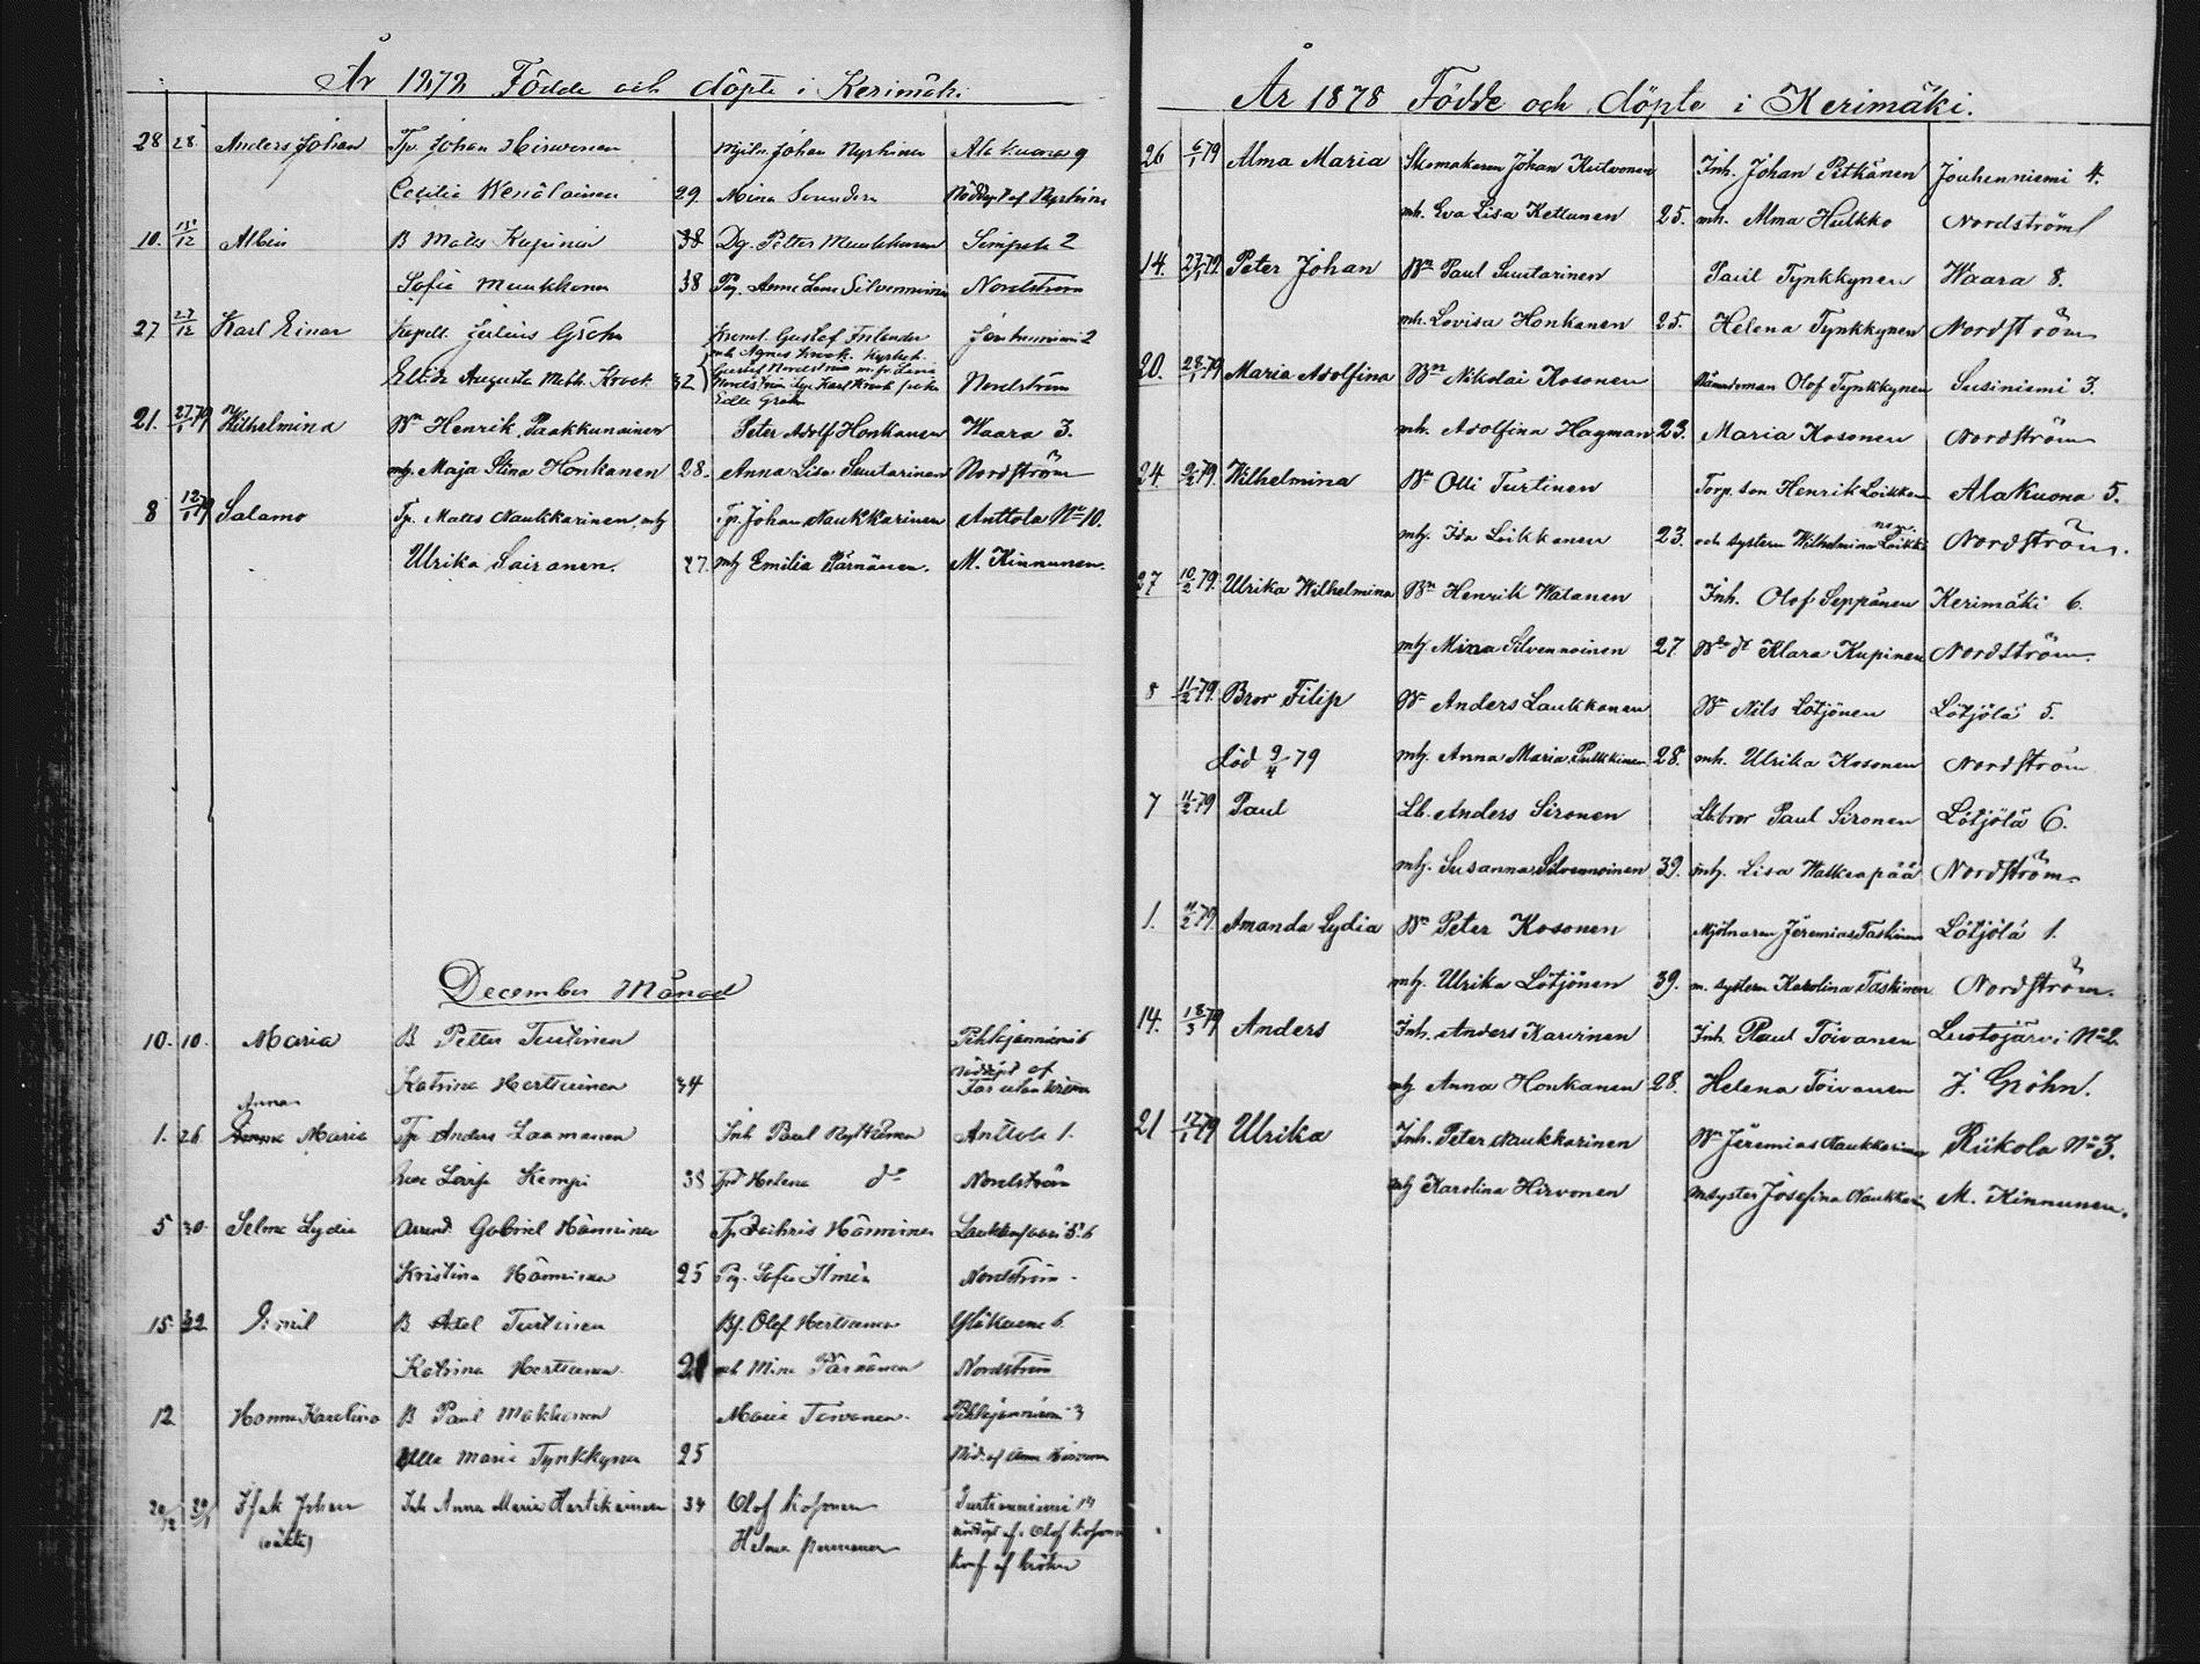 År 1878 Födde och döpte i Kerimäki
28 28 Anders Johan Tp. Johan Hirvonen Mjiln. Johan Nyrhinen Alakuona 9
Cecilia Wenäläinen 29 Mina Nöddöpt af Nyrhinen
10. 15/12 Albin B Mats Kupinen 38 Dg. Petter Muukkonen Simpele 2
Sofia Muukkonen 38 Pig. Anna Lena Silvennoinen Nordström
27 27/12 Karl Einar Kapell. Julius Gröhn Gustaf Jouhenniemi 2
Elide Augusta Math. Krook 32 Nordström
21. 27/1 79 Wilhelmina Bn Henrik Paakkunainen Peter Adolf Honkanen Waara 3.
mhj. Maja Stina Honkanen 28. Anna Lisa Suutarinen Nordström
8 12/1 79 Salamo Tp. Mats Naukkarinen, mhj Tp. Johan Naukkarinen Anttola No 10.
Ulrika Sairanen. 27. mhj Emilia Pärnänen. M. Kinnunen.
December Månad
10. 10. Maria B Petter Turtinen Pihlajaniemi 6
Katrina Herttuinen 34 nöddöpt af
Anna
1. 26 Maria Tp Anders Laamanen Inh Paul Anttola 1.
Eva Lovisa Kemppi 38 Helena do Nordström
5 30 Selma Lydia Arrend. Gabriel Hänninen Tp Zachris Hänninen Laukansaari 5.6
Kristina Hänninen 25 Pig. Sofia Ilmén Nordström
15. 22 Emil B Axel Turtinen Bf. Olof Herttuanen Yläkuona 6
Katrina Herttuanen 21 och Mina Pärnänen Nordström
12 Hanna Karolina B Paul Makkonen Maria Toivanen Pihlajaniemi 3
Ulla Maria Tynkkynen 25 Nöd. af Anna Hirvonen
20/12 20/1 Isak Johan Inh Anna Maria Hartikainen 34 Olof Kosonen
(oäkta) Helena nöddöpt af Olof Kosonen
konf. af Gröhn
År 1878 Födde och döpte i Kerimäki.
26 6/1 79 Alma Maria Skomakaren Johan Kutvonen Inh. Johan Pitkänen Jouhenniemi 4.
mh. Eva Lisa Kettunen 25. mh. Alma Hulkko Nordström
14. 27/1 79. Peter Johan Bn Paul Suutarinen Paul Tynkkynen Waara 8.
mh. Lovisa Honkanen 25. Helena Tynkkynen Nordström
20. 28/1 79 Maria Adolfina Bn Nikolai Kosonen Nämndeman Olof Tynkkynen Susiniemi 3.
mh. Adolfina Hagman 23. Maria Kosonen Nordström
24. 9/2 79. Wilhelmina Bn Olli Turtinen Torp. son Henrik Loikkanen Alakuona 5.
mhj. Ida Loikkanen 23. och systern Wilhelmina Loikkanen Nordström.
27 10/2 79. Ulrika Wilhelmina Bn Henrik Wätanen Inh. Olof Seppänen Kerimäki 6.
mhj Mina Silvennoinen 27. Klara Kupinen Nordström.
8 11/2 79. Bror Filip Bn Anders Laukkanen Bn Nils Lötjönen Lötjölä 5.
död 9/4 79 mhj. Anna Maria Pulkkinen 28. mh. Ulrika Kosonen Nordström
7 11/2 79 Paul Lb. Anders Sironen Lb. bror Paul Sironen Lötjölä 6.
mhj. Susanna Silvennoinen 39. mhj. Lisa Walkeapää Nordström.
1. 11/2 79. Amanda Lydia Bn Peter Kosonen Mjölnaren Jeremias Taskinen Lötjölä 1.
mhj. Ulrika Lötjönen 39. m. systern Karolina Taskinen Nordström.
14. 18/3 79 Anders Inh. Anders Karvinen Inh. Paul Toivanen Lustojärvi No 2.
mhj Anna Honkanen 28. Helena Toivanen J. Gröhn.
21 12/1 79 Ulrika Inh. Peter Naukkarinen Bn Jeremias Naukkarinen Riikola No 3.
mhj Karolina Hirvonen m syster Josefina Naukkarin M. Kinnunen.